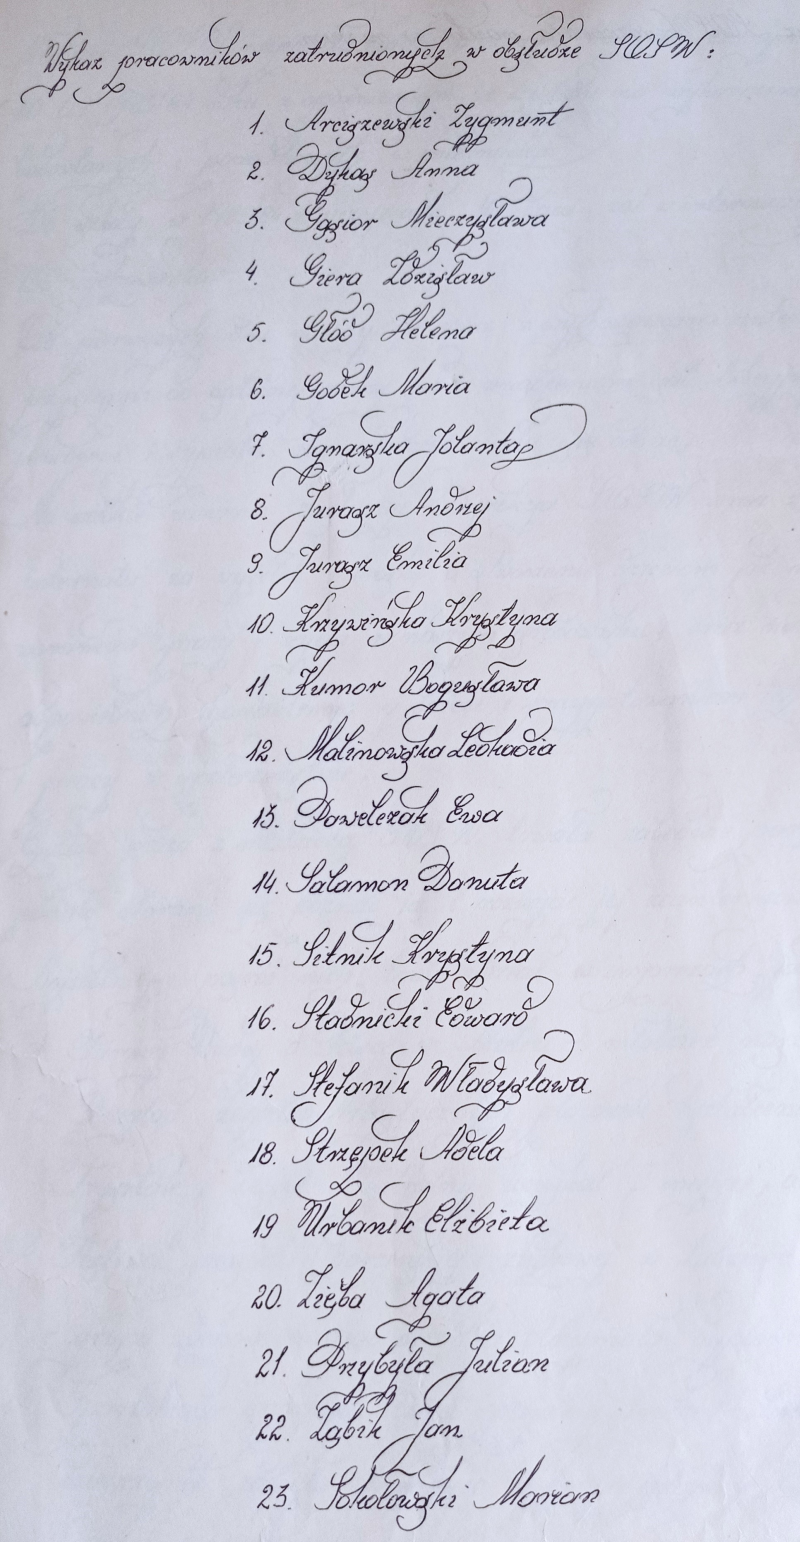 Wykaz pracowników zatrudnionych w obsłudze SOSW:
1. Arciszewski Zygmunt
2. Dykas Anna
3. Gąsior Mieczysława
4. Giera Zdzisław
5. Głód Helena
6. Godek Maria
7. Ignarska Jolanta
8. Jurasz Andrzej
9. Jurasz Emilia
10. Krzywińska Krystyna
11. Kumor Bogusława
12. Malinowska Leokadia
13. Pawelczak Ewa
14. Salamon Danuta
15. Sitnik Krystyna
16. Stadnicki Edward
17. Stefanik Władysława
18. Strzępek Adela
19 Urbanik Elżbieta
20. Zięba Agata
21. Przybyła Julian
22. Ząbik Jan
23. Sokołowski Marian